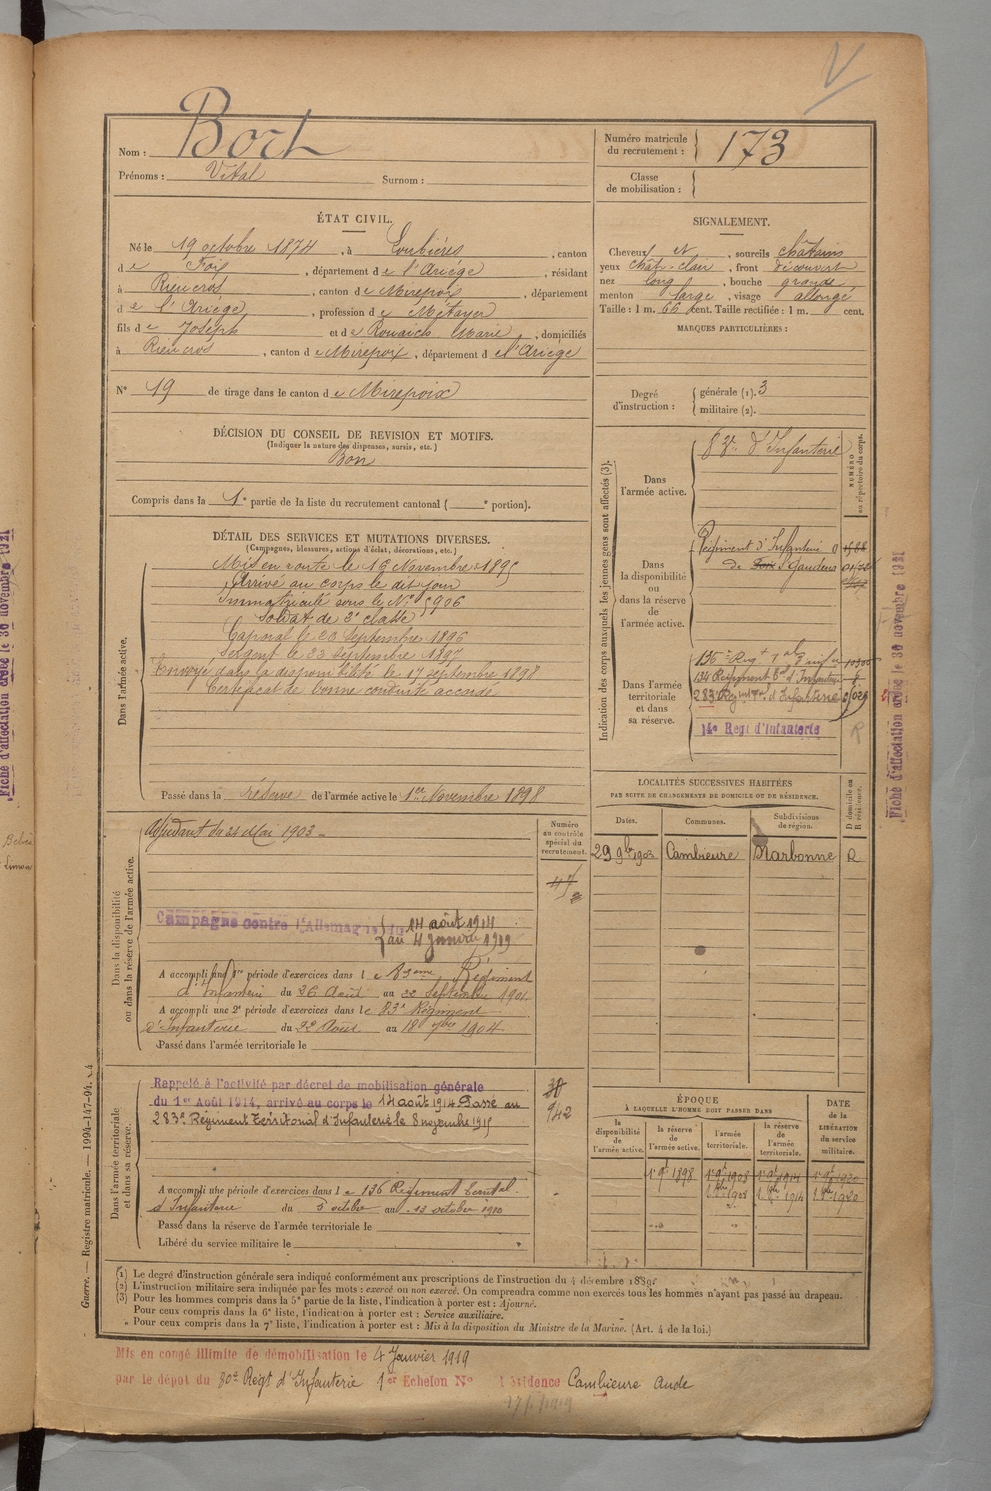 Nom : Bort
Prénoms : Vital Surnom :
Numéro matricule du recrutement : 173
Classe de mobilisation :
ÉTAT CIVIL.
Né le 19 octobre 1874, à Loubières, canton
de Foix, département de l'Ariége, résidant
à Rieucros, canton de Mirepoix, département
de l'Ariége, profession de Métayer
fils de Joseph et de Rouaich Marie, domiciliés
à Rieucros, canton de Mirepoix, département de l'Ariége
N° 19 de tirage dans le canton de Mirepoix
SIGNALEMENT.
Cheveux et, sourcils châtains
yeux chât-clair, front découvert
nez long, bouche grande,
menton large, visage allongé,
Taille : 1 m. 66 cent. Taille rectifiée : 1 m. cent.
MARQUES PARTICULIÈRES :
Degré d'instruction : générale (1). 3
militaire (2).
DÉCISION DU CONSEIL DE REVISION ET MOTIFS.
(Indiquer la nature des dispenses, sursis, etc.)
Bon
Compris dans la 1e partie de la liste du recrutement cantonal ( e portion).
DÉTAIL DES SERVICES ET MUTATIONS DIVERSES.
(Campagnes, blessures, actions d'éclat, décorations, etc.)
Dans l'armée active.
Mis en route le 16 Novembre 1895
Arrivé au corps le dit jour
Immatriculé sous le N° 5906
Soldat de 2e classe
Caporal le 20 Septembre 1896
Sergent le 23 Septembre 1897
Envoyé dans la disponibilité le 17 septembre 1898
Certificat de bonne conduite accordé
Passé dans la réserve de l'armée active le 1er Novembre 1898
Indication des corps auxquels les jeunes gens sont affectés (3).
NUMÉRO au répertoire du corps.
Dans l'armée active.
83e d'Infanterie
Dans la disponibilité ou dans la réserve de l'armée active.
Régiment d'Infanterie
de Foix St Gaudens
Dans l'armée territoriale et dans sa réserve.
136e Regt Tal d'Infie
134 Régiment Tal d'Infanterie
283 Regiment Tal d'Infanterie
14e Regt d'Infanterie
R
Fiche d'affectation créée le 30 novembre 1921
Fiche d'affectation créée le 30 novembre 1921
LOCALITÉS SUCCESSIVES HABITÉES
PAR SUITE DE CHANGEMENTS DE DOMICILE OU DE RÉSIDENCE.
Dates. Communes. Subdivisions de région. D domicile ou R résidence.
29 9bre 1903 Cambieure Narbonne R
Dans la disponibilité ou dans la réserve de l'armée active.
Numéro au contrôle spécial du recrutement.
Adjudant du 21 Mai 1903
Campagne contre l'Allemagne du 14 août 1914
au 4 janvier 1919
A accompli une 1re période d'exercices dans le 83eme Régiment
d'Infanterie du 26 Août au 22 Septembre 1901
A accompli une 2e période d'exercices dans le 83e Régiment
d'Infanterie du 22 Août au 18 7bre 1904
Passé dans l'armée territoriale le
Dans l'armée territoriale et dans sa réserve.
Rappelé à l'activité par décret de mobilisation générale
du 1er Août 1914, arrivé au corps le 14 août 1914. Passé au
283e Régiment Territorial d'Infanterie le 8 novembre 1915
942
A accompli une période d'exercices dans le 136 Régiment Territal
d'Infanterie du 5 octobre au 13 octobre 1910
Passé dans la réserve de l'armée territoriale le
Libéré du service militaire le
ÉPOQUE
À LAQUELLE L'HOMME DOIT PASSER DANS
la disponibilité de l'armée active. la réserve de l'armée active. l'armée territoriale. la réserve de l'armée territoriale. DATE de la LIBÉRATION du service militaire.
1 9bre 1898 1 9bre 1908 1 9bre 1914 1 9bre 1920
1 8bre 1908 1 8bre 1914 1 8bre 1920
(1) Le degré d'instruction générale sera indiqué conformément aux prescriptions de l'instruction du 4 décembre 1889.
(2) L'instruction militaire sera indiquée par les mots : exercé ou non exercé. On comprendra comme non exercés tous les hommes n'ayant pas passé au drapeau.
(3) Pour les hommes compris dans la 5e partie de la liste, l'indication à porter est : Ajourné.
Pour ceux compris dans la 6e liste, l'indication à porter est : Service auxiliaire.
Pour ceux compris dans la 7e liste, l'indication à porter est : Mis à la disposition du Ministre de la Marine. (Art. 4 de la loi.)
Guerre. — Registre matricule. — 1994-147-94.
Mis en congé illimité de démobilisation le 4 Janvier 1919
par le dépot du 80e Régt d'Infanterie 1er Echelon N° Résidence Cambieure Aude